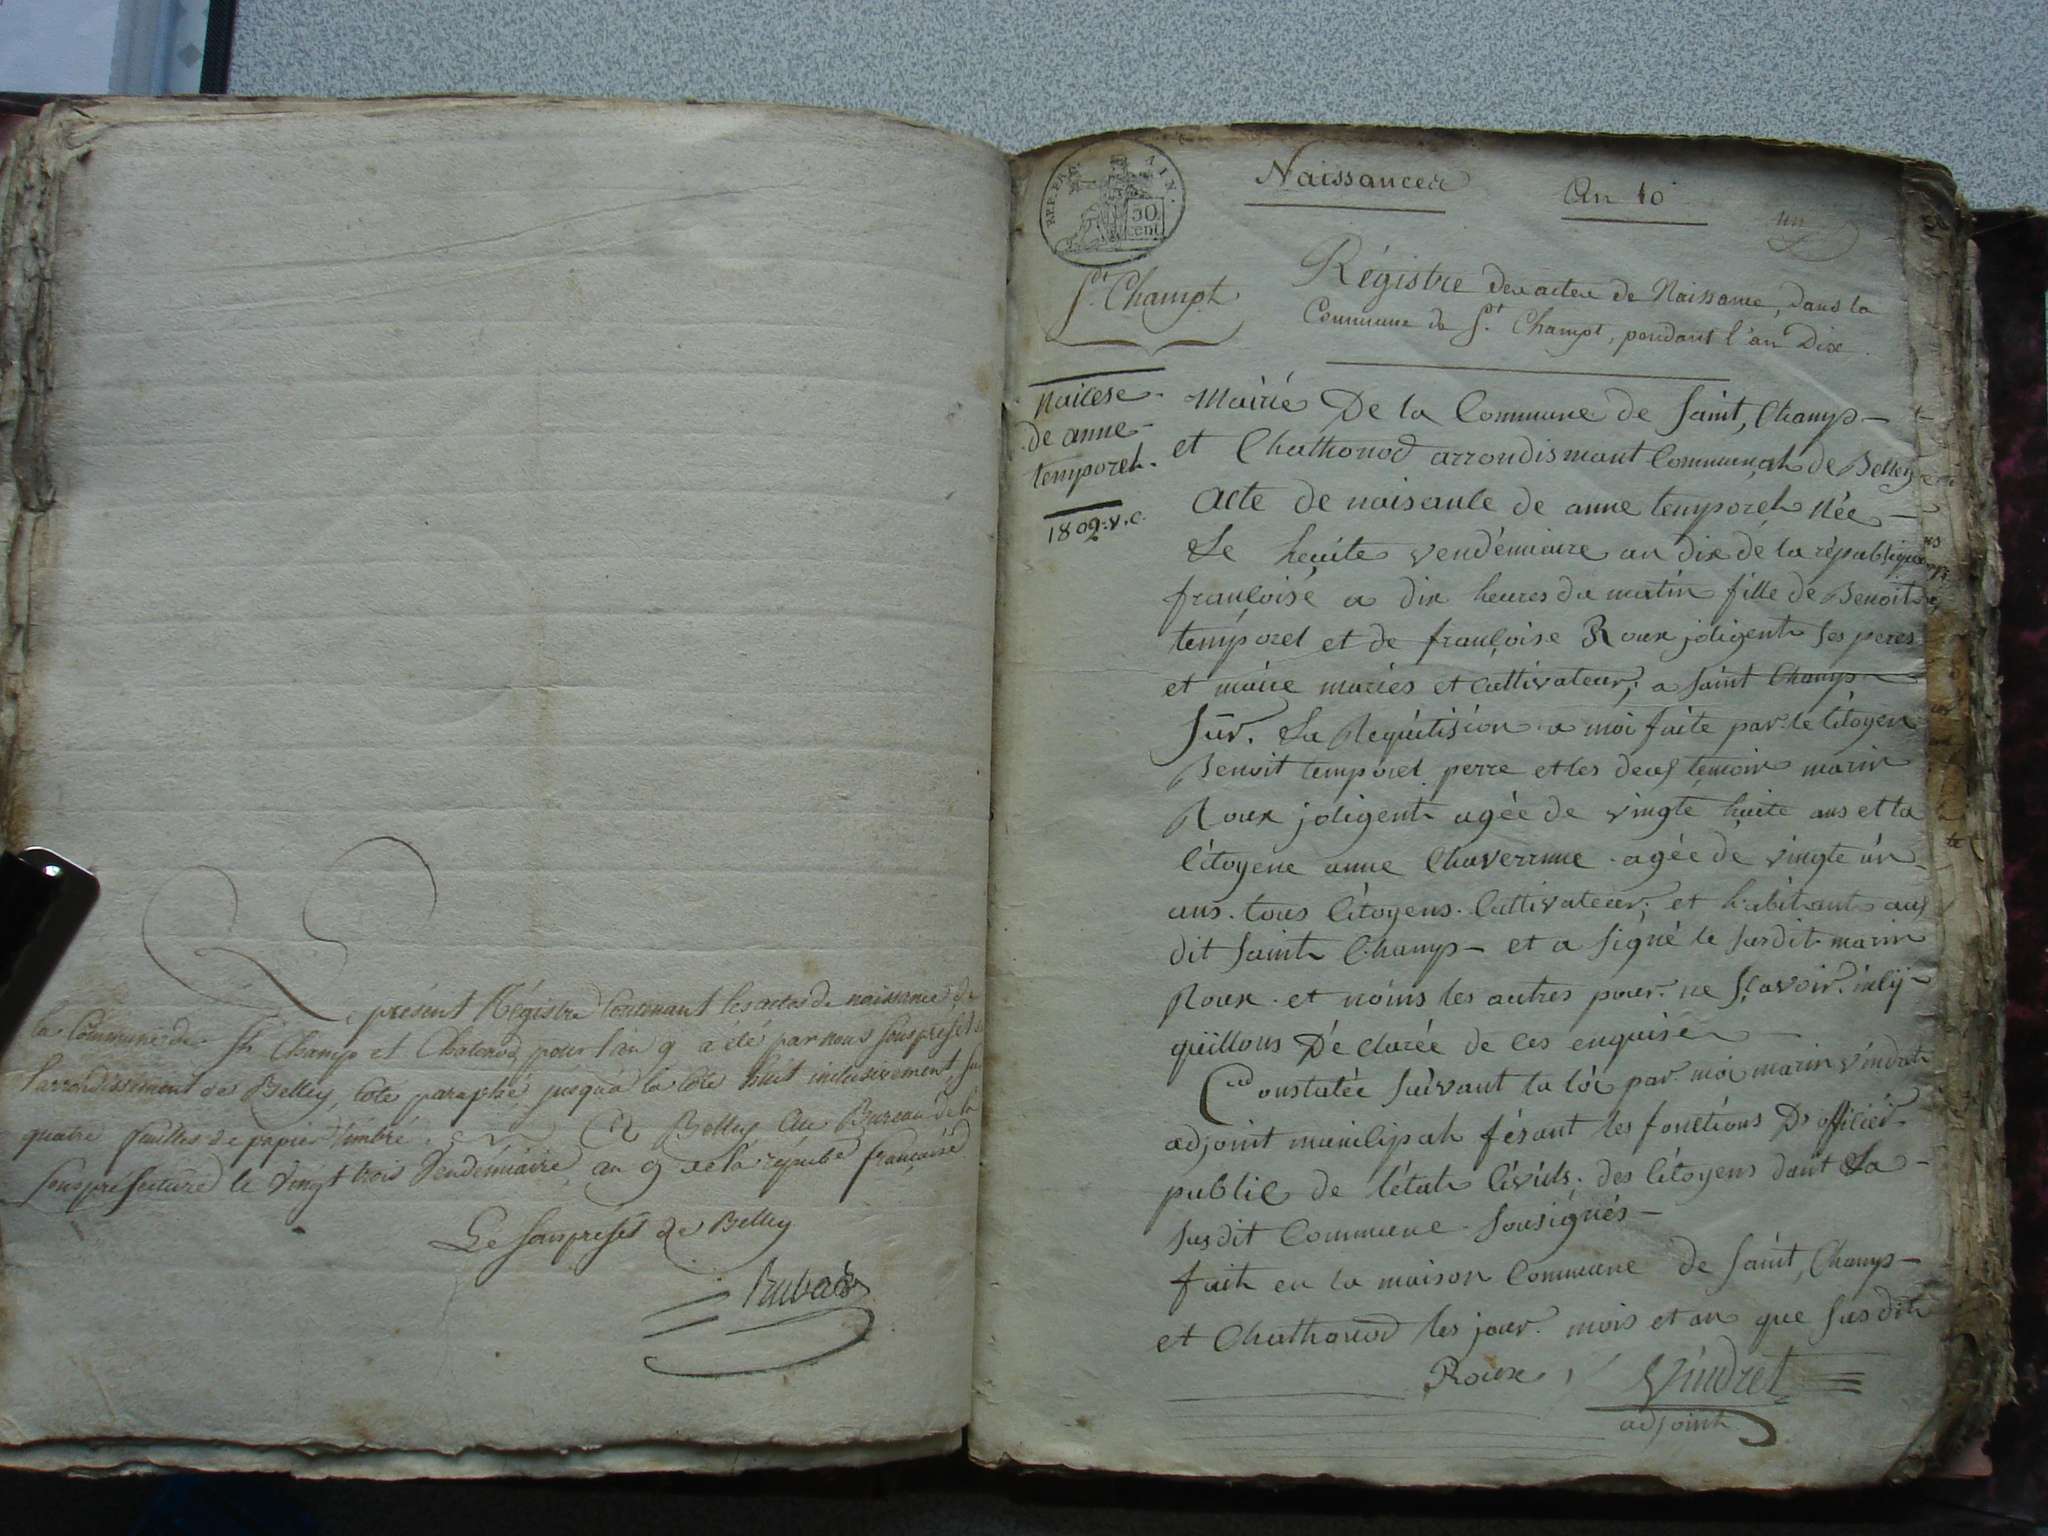 Le présent Régistre Contenant les actes de naissance de
la Commune de St. Champ et Chatonod pour l'an 9 a été par nous sous prefet de
l'arrondissement de Belley, coté paraphé jusqu'à la côte huit inclusivement, sur
quatre feuilles de papier timbré. a Belley Au Bureau de la
Sousprefecture le vingt trois Vendémiaire, an 9 de la répub.e française
Le Sousprefet de Belley
Rubat
REP. FRA. AIN.
50
cent
Naissances
An 10
un
St. Champt
Régistre des actes de Naissance, dans la
Commune de St. Champt, pendant l'an Dix.
naicese
de anne
temporel.
1802. v. c.
Mairie De la Commune de Saint, Champ
et Chathonod arrondismant Communal de Belley
Acte de naisance de anne temporel Née
Le heuite vendémiaire an dix de la république
françoise a dix heures du matin fille de Benoit
temporel et de françoise Roux joligent ses peres
et maire mariés et cultivateur, a saint Champ
Sur. La Requitision a moi faite par le Citoyen
Benoit temporel perre et les deus temoin marin
Roux joligent agée de vingte huite ans et la
Citoyene anne Chaverrine agée de vingte un
ans. tous Citoyens. Cultivateur, et habitant aus
dit Saint Champ et a signé le susdit marin
Roux et noins les autres pour ne sçavoir.
Déclarée de ces enquise
Constatée suivant la loi par moi marin Vindret
adjoint municipal fésant les fonctions D'officier
public de l'état civils, des Citoyens dant La
susdit Commune sousignés
fait en la maison Commune de Saint, Champ
et Chathonod les jour. mois et an que susdit
Roux,
Vindret
adjoint